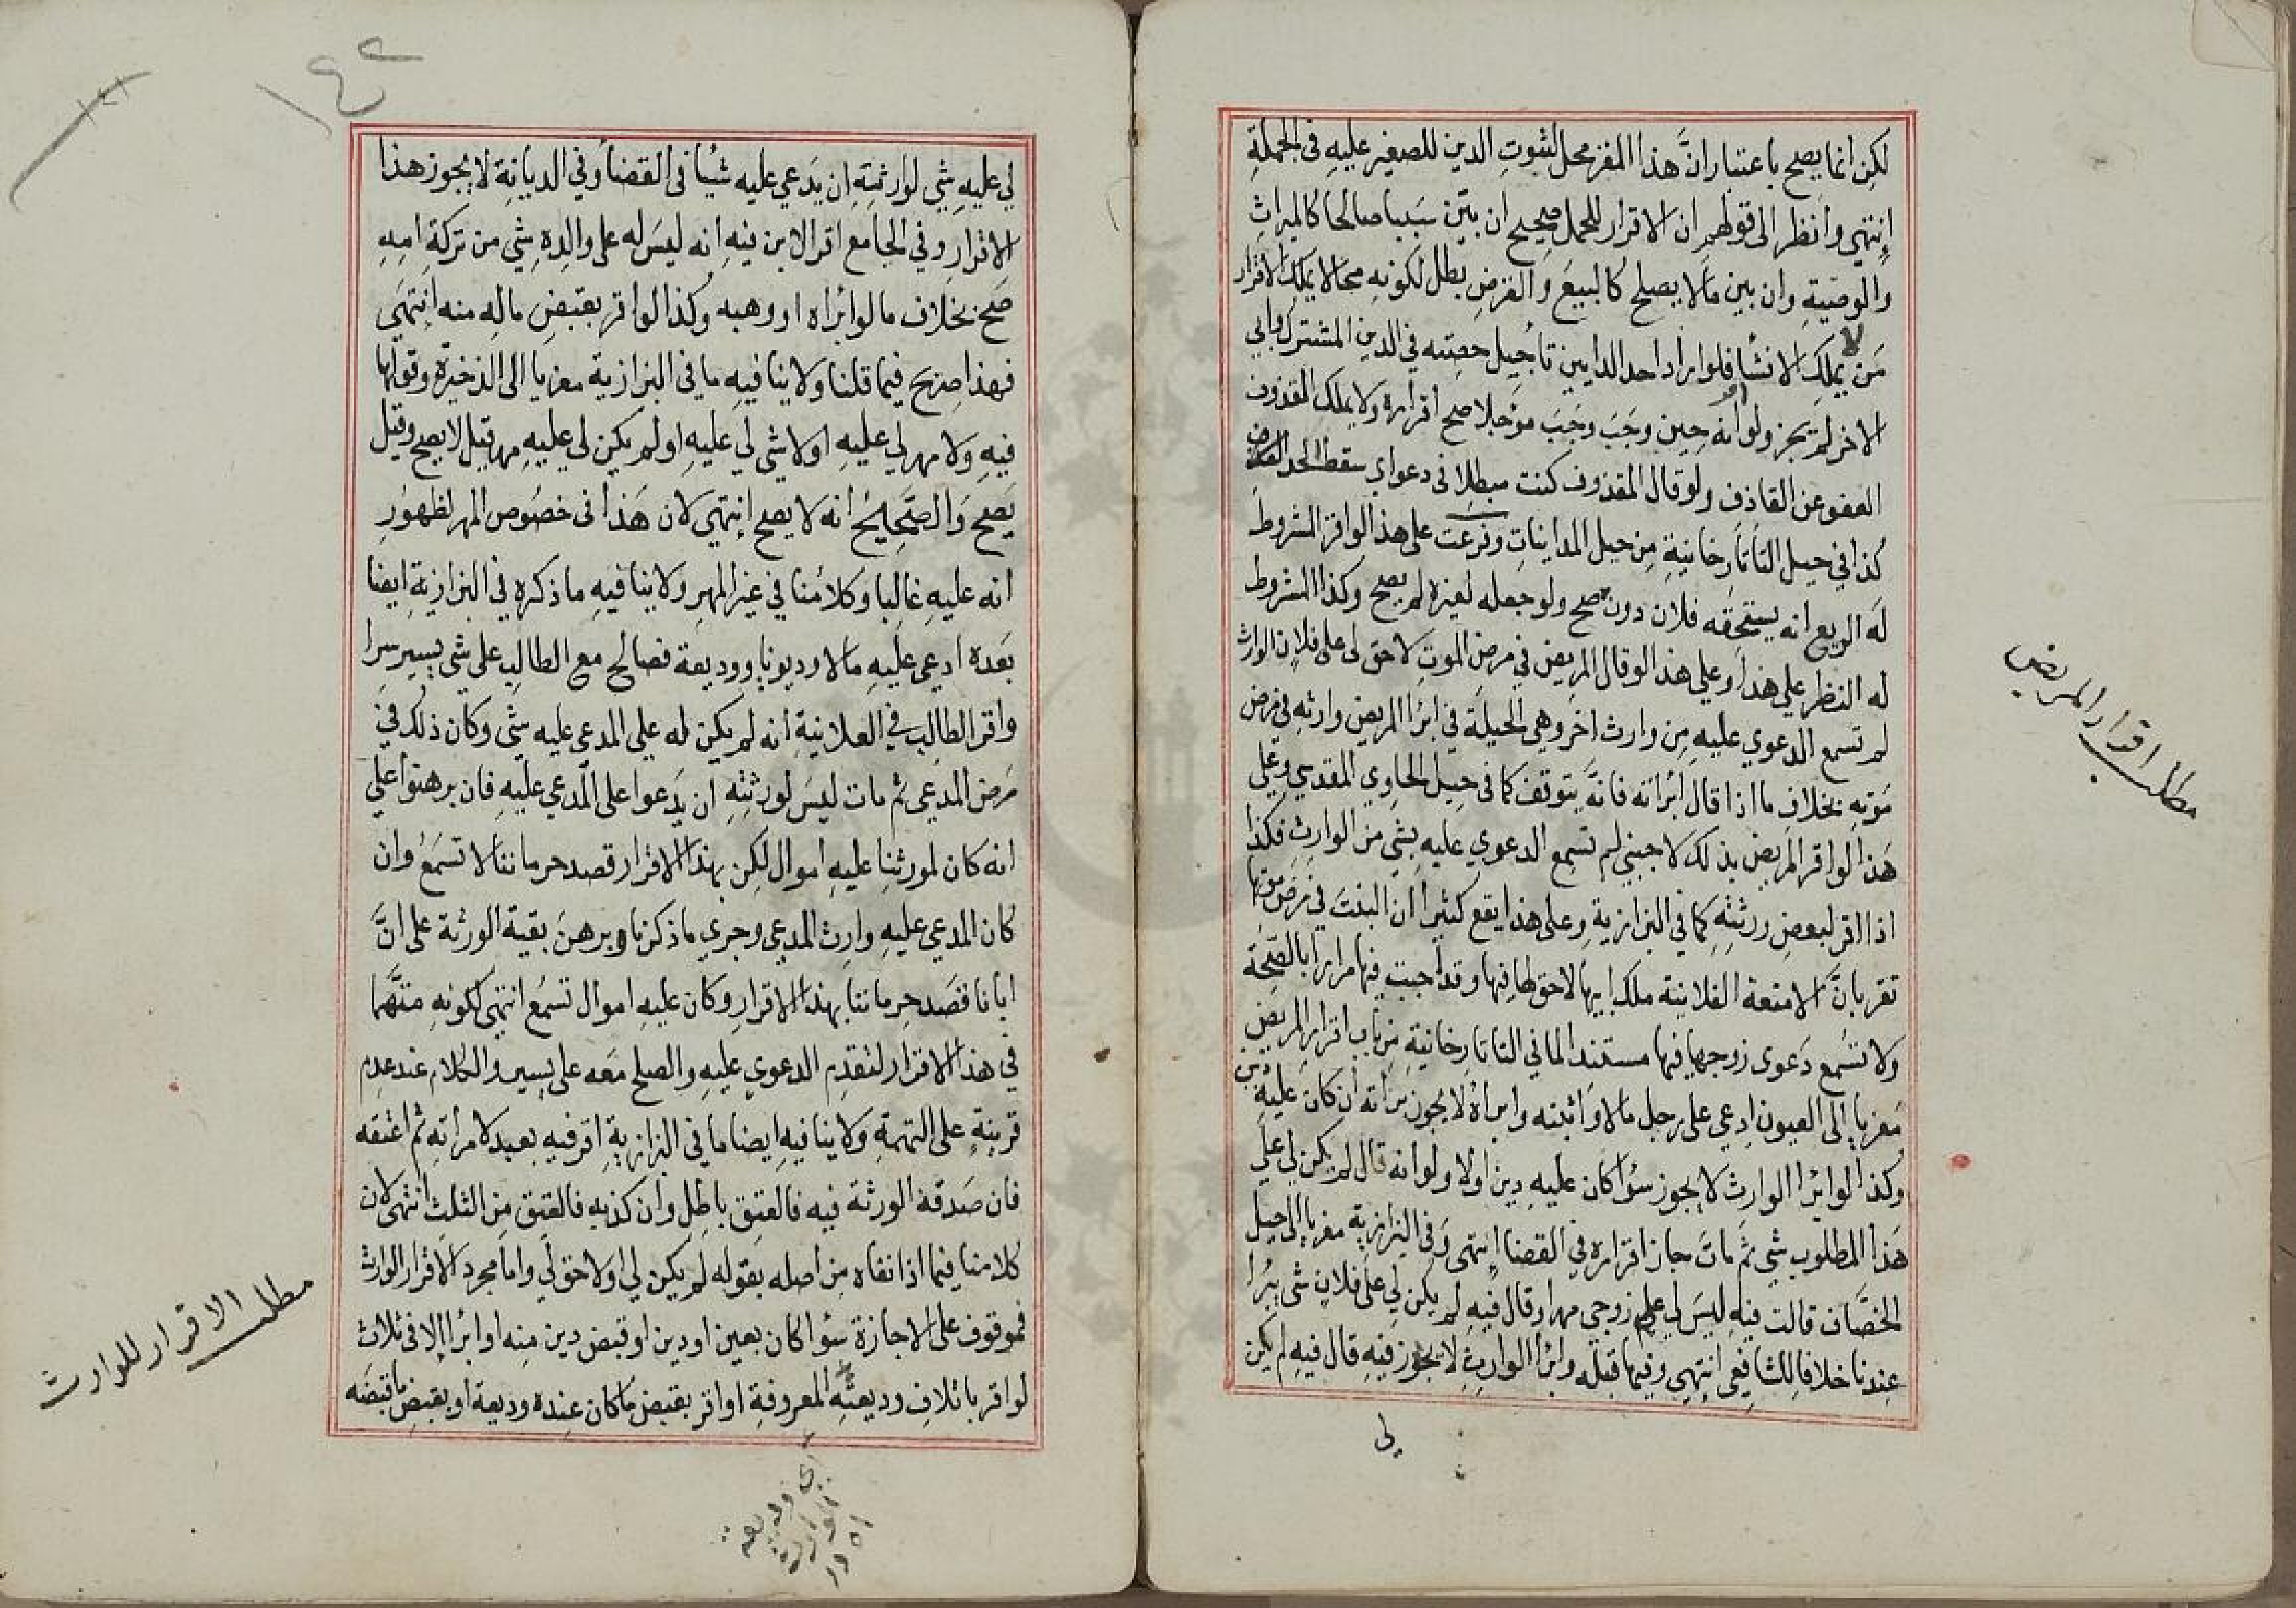 لكن انما يصلح باعتبار انَّ هذا المقر محل لثبوت الدين للصغير عليه فى الجملة
إنتهي وأنظر الى قولهم ان الاقرار للحمل صحيح ان بيّن سَبَبا صالحا كالميراث
والوصّية وان بين مالا يصلح كالبيع والقرض بطل لكونه محالا يملك الاقرار
مَن لا يملك الانشا فلو اراد احد الداينين تأجيل حصته في الدين المشترك وابي
الاخر لم يجز ولو اقر انه حين وجَبَ وجَبَ موجلا صح اقراره ولا يملك المقذوف
العفو عن القاذف ولو قال المقذوف كنت مبطلا فى دعواي سقط الحد
كذا في حيل التأتأرخانية من حيل المداينات وفرعت على هذا لو اقر المشروط
له الريع انه يستحقه فلان دونه صح ولو جعله لغيره لم يصح وكذا المشروط
له النظر علي هذا وعلي هذا لو قال المريض في مرض الموت لا حق لى على فلان الوارث
لم تسمع الدعوي عليه من وارث اخر وهي الحيلة في ابرا المريض وارثه في مرض
موته بخلاف ما اذا قال ابراته فانّه يتوقف كما فى حيل الحاوي المقدسي وعلي
هذا لو اقر المريض بذلك لاجنبي لم تسمع الدعوي عليه بشي من الوارث فكذا
اذا اقر لبعض ورثته كما في البزازية وعلى هذا يقع كثيرا ان البنت في مرض موتها
تقر بانَّ الامتعة الفلانية ملك ابيها لا حق لها فيها وقد أجبت فيها مرارا بالصّحة
ولا تسمع دعوى زوجها فيها مستندا لما في التاتارخانية من باب اقرار المريض
مغزيا الى العيون ادعى على رجل مالا واثبته وابراه لا يجوز براته ان كان عليه دين
وكذا لو ابرا الوارث لا يجوز سوا كان عليه دين اولا ولو انه قال لم يكن لي علي
هذا المطلوب شي ثمّ مات جاز اقراره في القضا إنتهى وفى البزازية مغزيا الى حيل
الخصّاف قالت فيه ليس لي على زوجى مهر او قال فيه لم يكن لي على فلان شى يبرا
عندنا خلافا للشافعي إنتهى وفيها قبله وابرا الوارث لا يجوز فيه قال فيه لم يكن
لى
مطلب اقرار المريض
١٤٢
١٤١
لي عليه شي لورثته ان يدعي عليه شيأ فى القضأ وفي الديانة لا يجوز هذا
الاقرار وفي الجامع اقر الابن فيه انه ليس له على والده شي من تركة امه
صح بخلاف مالو ابراه او وهبه وكذا لو اقر بقبض ماله منه إنتهي
فهذا صريح فيما قلنا ولا ينافيه ما فى البزازية مغزيا الى الذخيرة وقولها
فيه ولا مهر لي عليه او لا شي لي عليه او لم يكن لي عليه مهر قيل لا يصح وقيل
يصح والصّحيح أنه لا يصح إنتهي لان هذا فى خصوص المهر لظهور
انه عليه غالبا وكلامنا في غير المهر ولا ينافيه ما ذكره في البزازية ايضا
بعده ادعي عليه مالا وديونا ووديعة فصالح مع الطالب على شى يسير سرا
واقر الطالب في العلانية أنه لم يكن له على المدعى عليه شى وكان ذلك في
مرض المدعى ثم مات ليس لورثته ان يدعوا على المدعي عليه فان برهنوا على
انه كان لمورثنا عليه أموال لكن بهذا الاقرار قصد حرماننا لا تسمع وان
كان المدعى عليه وارث المدعي وجري ما ذكرنا وبرهن بقية الورثة على انّ
ابانا قصد حرماننا بهذا الاقرار وكان عليه اموال تسمع انتهى لكونه متهما
في هذا الاقرار لتقدم الدعوي عليه والصلح معه على يسير والكلام عند عدم
قرينة على التهمة ولا ينافيه ايضا ما في البزازية اقر فيه بعبد لامراته ثم اعتقه
فان صدقه الورثة فيه فالعتق باطل وان كذبه فالعتق من الثلث انتهي لان
كلامنا فيما اذا نفاه من اصله بقوله لم يكن لي او لا حق لي واما مجرد الاقرار للوارث
فموقوف على الاجازة سوا كان بعين او دين او قبض دين منه او ابرا الا فى ثلاث
لو اقر باتلاف وديعته المعروفة او اقر بقبض ما كان عنده وديعة او بقبض ما قبضه
مطلب الاقرار للوارث